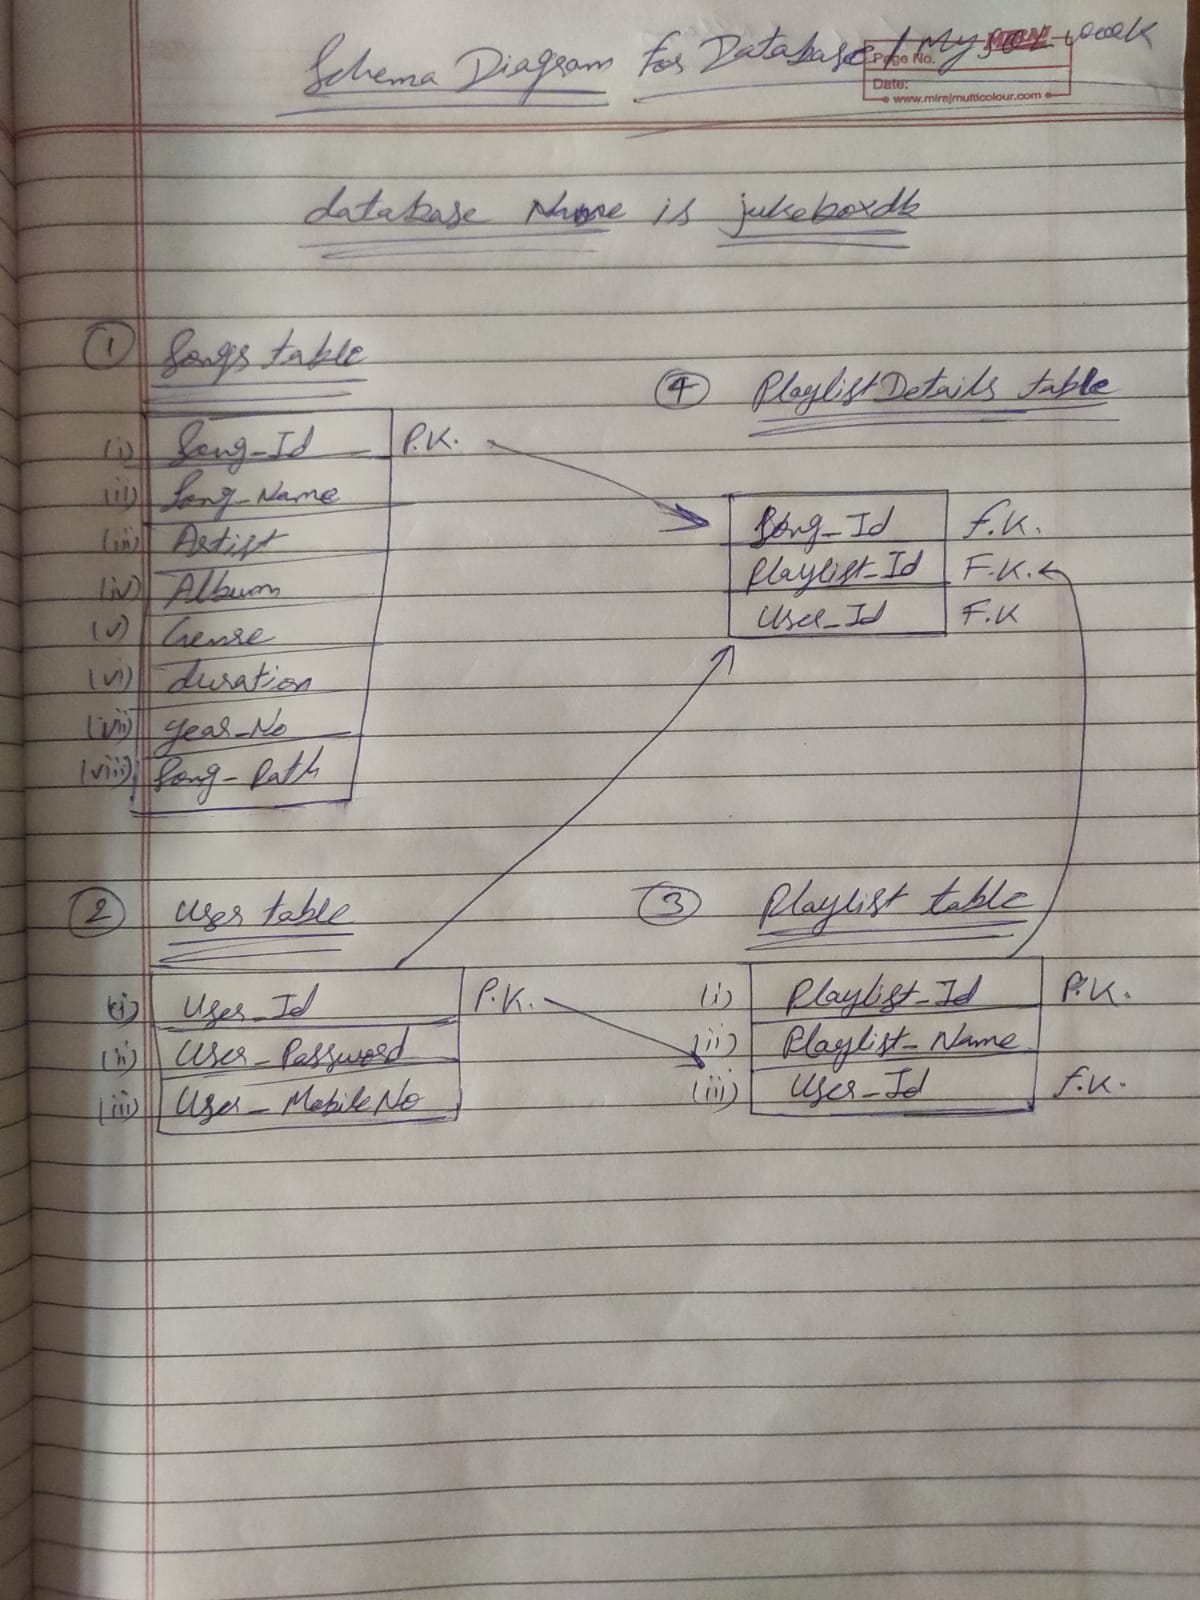 Schema Diagram For Database / MySQL work
Page No.
Date:
www.mirajmulticolour.com
database Name is jukeboxdb
① Songs table
(i) Song_Id P.K.
(ii) Song_Name
(iii) Artist
(iv) Album
(v) Genre
(vi) duration
(vii) year_No
(viii) Song_Path
④ PlaylistDetails table
Song_Id F.K.
Playlist_Id F.K.
User_Id F.K
② User table
(i) User_Id P.K.
(ii) User_Password
(iii) User_MobileNo
③ Playlist table
(i) Playlist_Id P.K.
(ii) Playlist_Name
(iii) User_Id F.K.